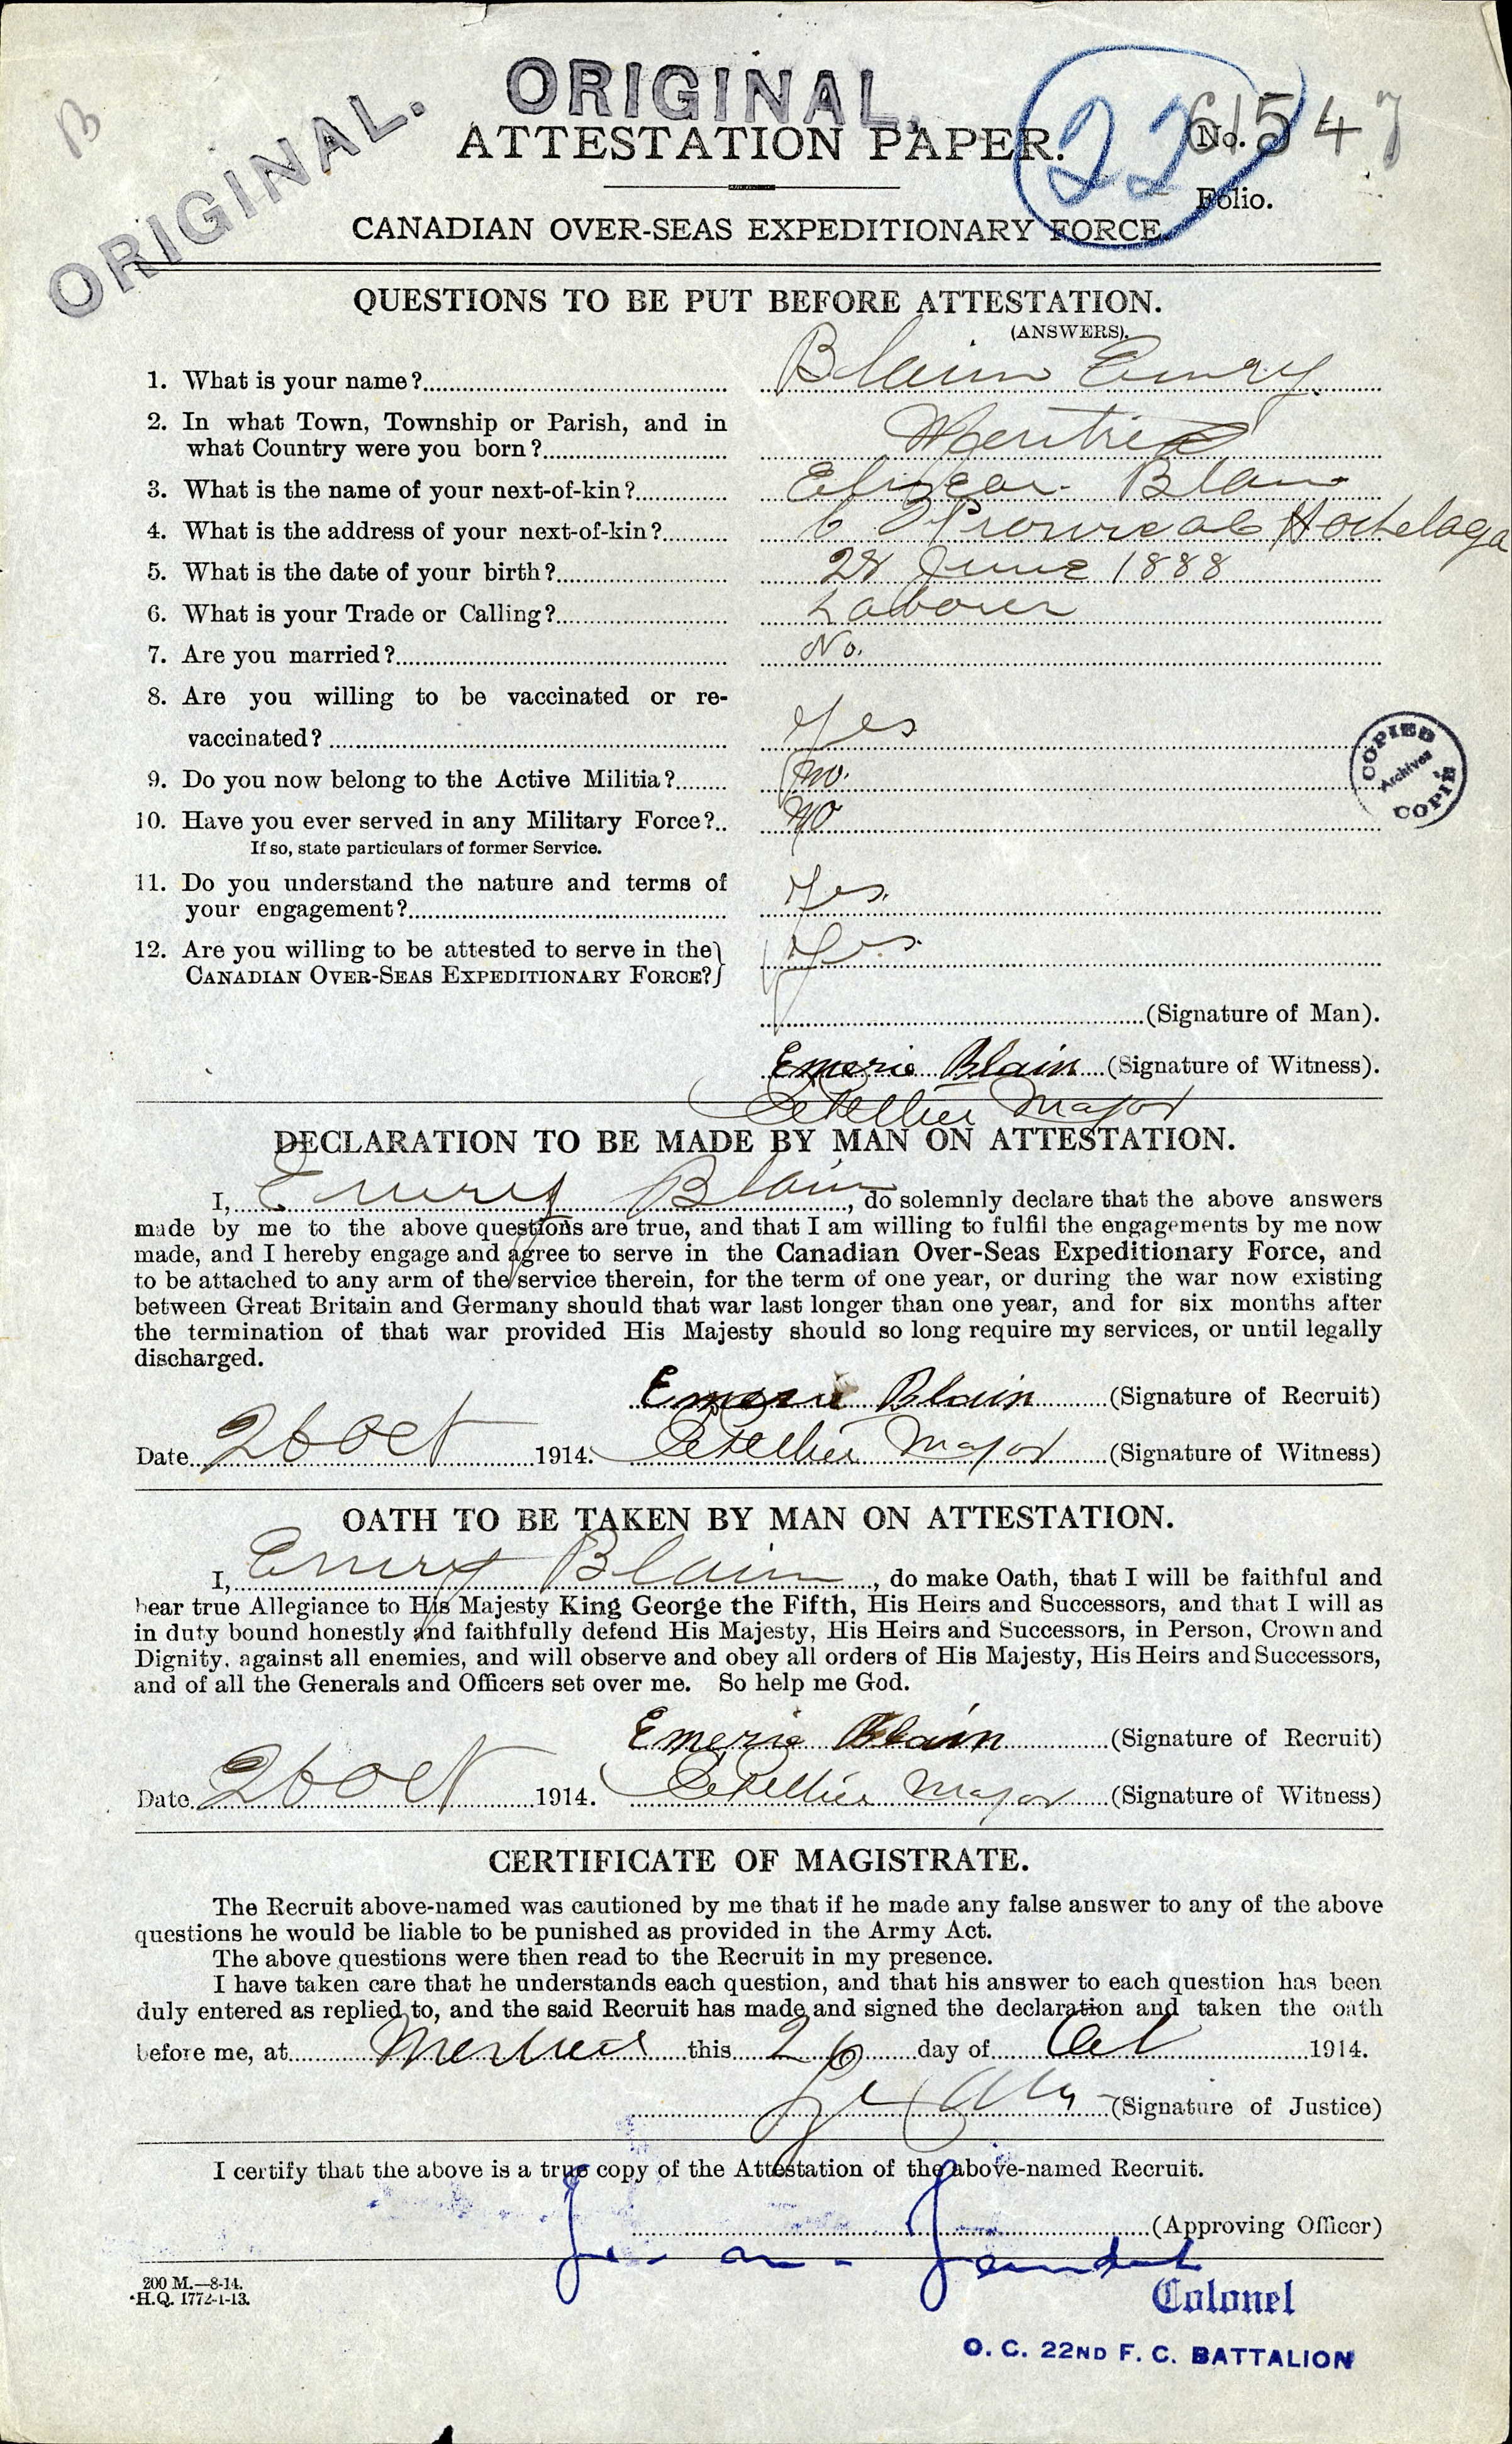 B
ORIGINAL.
ORIGINAL.
ATTESTATION PAPER.
22
No. 61547
Folio.
CANADIAN OVER-SEAS EXPEDITIONARY FORCE.
QUESTIONS TO BE PUT BEFORE ATTESTATION.
(ANSWERS).
1. What is your name? Blain Emery
2. In what Town, Township or Parish, and in
what Country were you born? Montreal
3. What is the name of your next-of-kin? Elizear Blain
4. What is the address of your next-of-kin? Hochelaga
5. What is the date of your birth? 28 June 1888
6. What is your Trade or Calling? Labourer
7. Are you married? No.
8. Are you willing to be vaccinated or re-
vaccinated? Yes
9. Do you now belong to the Active Militia? no.
10. Have you ever served in any Military Force?.. no
If so, state particulars of former Service.
11. Do you understand the nature and terms of
your engagement? Yes.
12. Are you willing to be attested to serve in the
CANADIAN OVER-SEAS EXPEDITIONARY FORCE? Yes.
COPIED
Archives
COPIÉ
(Signature of Man).
Emerie Blain (Signature of Witness).
Letellier Major
DECLARATION TO BE MADE BY MAN ON ATTESTATION.
I, Emery Blain, do solemnly declare that the above answers
made by me to the above questions are true, and that I am willing to fulfil the engagements by me now
made, and I hereby engage and agree to serve in the Canadian Over-Seas Expeditionary Force, and
to be attached to any arm of the service therein, for the term of one year, or during the war now existing
between Great Britain and Germany should that war last longer than one year, and for six months after
the termination of that war provided His Majesty should so long require my services, or until legally
discharged.
Emerie Blain (Signature of Recruit)
Date 26 Oct 1914. Letellier Major (Signature of Witness)
OATH TO BE TAKEN BY MAN ON ATTESTATION.
I, Emery Blain, do make Oath, that I will be faithful and
bear true Allegiance to His Majesty King George the Fifth, His Heirs and Successors, and that I will as
in duty bound honestly and faithfully defend His Majesty, His Heirs and Successors, in Person, Crown and
Dignity, against all enemies, and will observe and obey all orders of His Majesty, His Heirs and Successors,
and of all the Generals and Officers set over me. So help me God.
Emerie Blain (Signature of Recruit)
Date 26 Oct 1914. Letellier Major (Signature of Witness)
CERTIFICATE OF MAGISTRATE.
The Recruit above-named was cautioned by me that if he made any false answer to any of the above
questions he would be liable to be punished as provided in the Army Act.
The above questions were then read to the Recruit in my presence.
I have taken care that he understands each question, and that his answer to each question has been
duly entered as replied to, and the said Recruit has made and signed the declaration and taken the oath
before me, at Montreal this 26 day of Oct 1914.
(Signature of Justice)
I certify that the above is a true copy of the Attestation of the above-named Recruit.
(Approving Officer)
200 M.—8-14.
H.Q. 1772-1-13.
Colonel
O. C. 22ND F. C. BATTALION